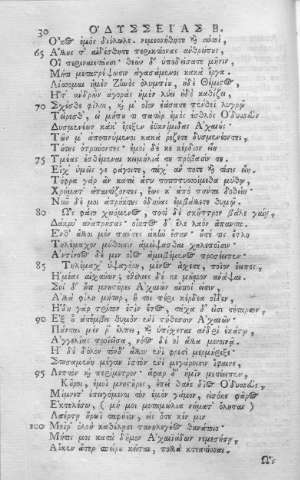 30 ΟΔΥΣΣΕΙΑΣ Β.
Οἶκος ἐμὸς διόλωλε. νεμεσσήθητε καὶ αὐτοί,
65 Ἄλλους τ' αἰδέσθητε περικτίονας ἀνθρώπους,
Οἳ περιναιετάουσι· θεῶν δ' ὑποδείσατε μῆνιν,
Μήτι μεταστρέψωσιν ἀγασσάμενοι κακὰ ἔργα.
Λίσσομαι ἠμὲν Ζηνὸς ὀλυμπίου, ἠδὲ Θέμιστος,
Ἥτ' ἀνδρῶν ἀγορὰς ἠμὲν λύει ἠδὲ καθίζει,
70 Σχέσθε φίλοι, καί μ' οἶον ἐάσατε πένθεϊ λυγρῷ
Τείρεσθ', εἰ μή πού τι πατὴρ ἐμὸς ἐσθλὸς Ὀδυσσεὺς
Δυσμενέων κάκ' ἔρεξεν ἐϋκνήμιδας Ἀχαιούς·
Τῶν μ' ἀποτινύμενοι κακὰ ῥέζετε δυσμενέοντες,
Τούτους ὀτρύνοντες· ἐμοὶ δέ κε κέρδιον εἴη
75 Ὑμέας ἐσθέμεναι κειμήλιά τε πρόβασίν τε.
Εἴ χ' ὑμεῖς γε φάγοιτε, τάχ' ἄν ποτε καὶ τίσις εἴη.
Τόφρα γὰρ ἂν κατὰ ἄστυ ποτιπτυσσοίμεθα μύθῳ,
Χρήματ' ἀπαιτίζοντες, ἕως κ' ἀπὸ πάντα δοθείη·
Νῦν δέ μοι ἀπρήκτους ὀδύνας ἐμβάλλετε θυμῷ.
80 Ὣς φάτο χωόμενος, ποτὶ δὲ σκῆπτρον βάλε γαίῃ,
Δάκρυ' ἀναπρήσας· οἶκτος δ' ἕλε λαὸν ἅπαντα.
Ἔνθ' ἄλλοι μὲν πάντες ἀκὴν ἔσαν· οὐδέ τις ἔτλη
Τηλέμαχον μύθοισιν ἀμείψασθαι χαλεποῖσιν·
Ἀντίνοος δέ μιν οἶος ἀμειβόμενος προσέειπε·
85 Τηλέμαχ' ὑψαγόρη, μένος ἄσχετε, ποῖον ἔειπες,
Ἡμέας αἰσχύνων; ἐθέλοις δέ κε μῶμον ἀνάψαι.
Σοὶ δ' οὔτι μνηστῆρες Ἀχαιῶν αἴτιοί εἰσιν,
Ἀλλὰ φίλη μήτηρ, ἥ τοι πέρι κέρδεα οἶδεν.
Ἤδη γὰρ τρίτον ἐστὶν ἔτος, τάχα δ' εἶσι τέταρτον,
90 Ἐξ οὗ ἀτέμβει θυμὸν ἐνὶ στήθεσσιν Ἀχαιῶν·
Πάντας μέν ῥ' ἔλπει, καὶ ὑπίσχεται ἀνδρὶ ἑκάστῳ,
Ἀγγελίας προϊεῖσα, νόος δέ οἱ ἄλλα μενοινᾷ.
Ἡ δὲ δόλον τόνδ' ἄλλον ἐνὶ φρεσὶ μερμήριξε·
Στησαμένη μέγαν ἱστὸν ἐνὶ μεγάροισιν ὕφαινε,
95 Λεπτὸν καὶ περίμετρον· ἄφαρ δ' ἡμῖν μετέειπε,
Κοῦροι, ἐμοὶ μνηστῆρες, ἐπεὶ θάνε δῖος Ὀδυσσεύς,
Μίμνετ' ἐπειγόμενοι τὸν ἐμὸν γάμον, εἰσόκε φᾶρος
Ἐκτελέσω, (μή μοι μεταμώλια νήματ' ὄληται)
Λαέρτῃ ἥρωϊ ταφήϊον, εἰς ὅτε κέν μιν
100 Μοῖρ' ὀλοὴ καθέλῃσι τανηλεγέος θανάτοιο·
Μήτις μοι κατὰ δῆμον Ἀχαιϊάδων νεμεσήσῃ,
Αἴκεν ἄτερ σπείρου κεῖται, πολλὰ κτεατίσσας.
Ὣς